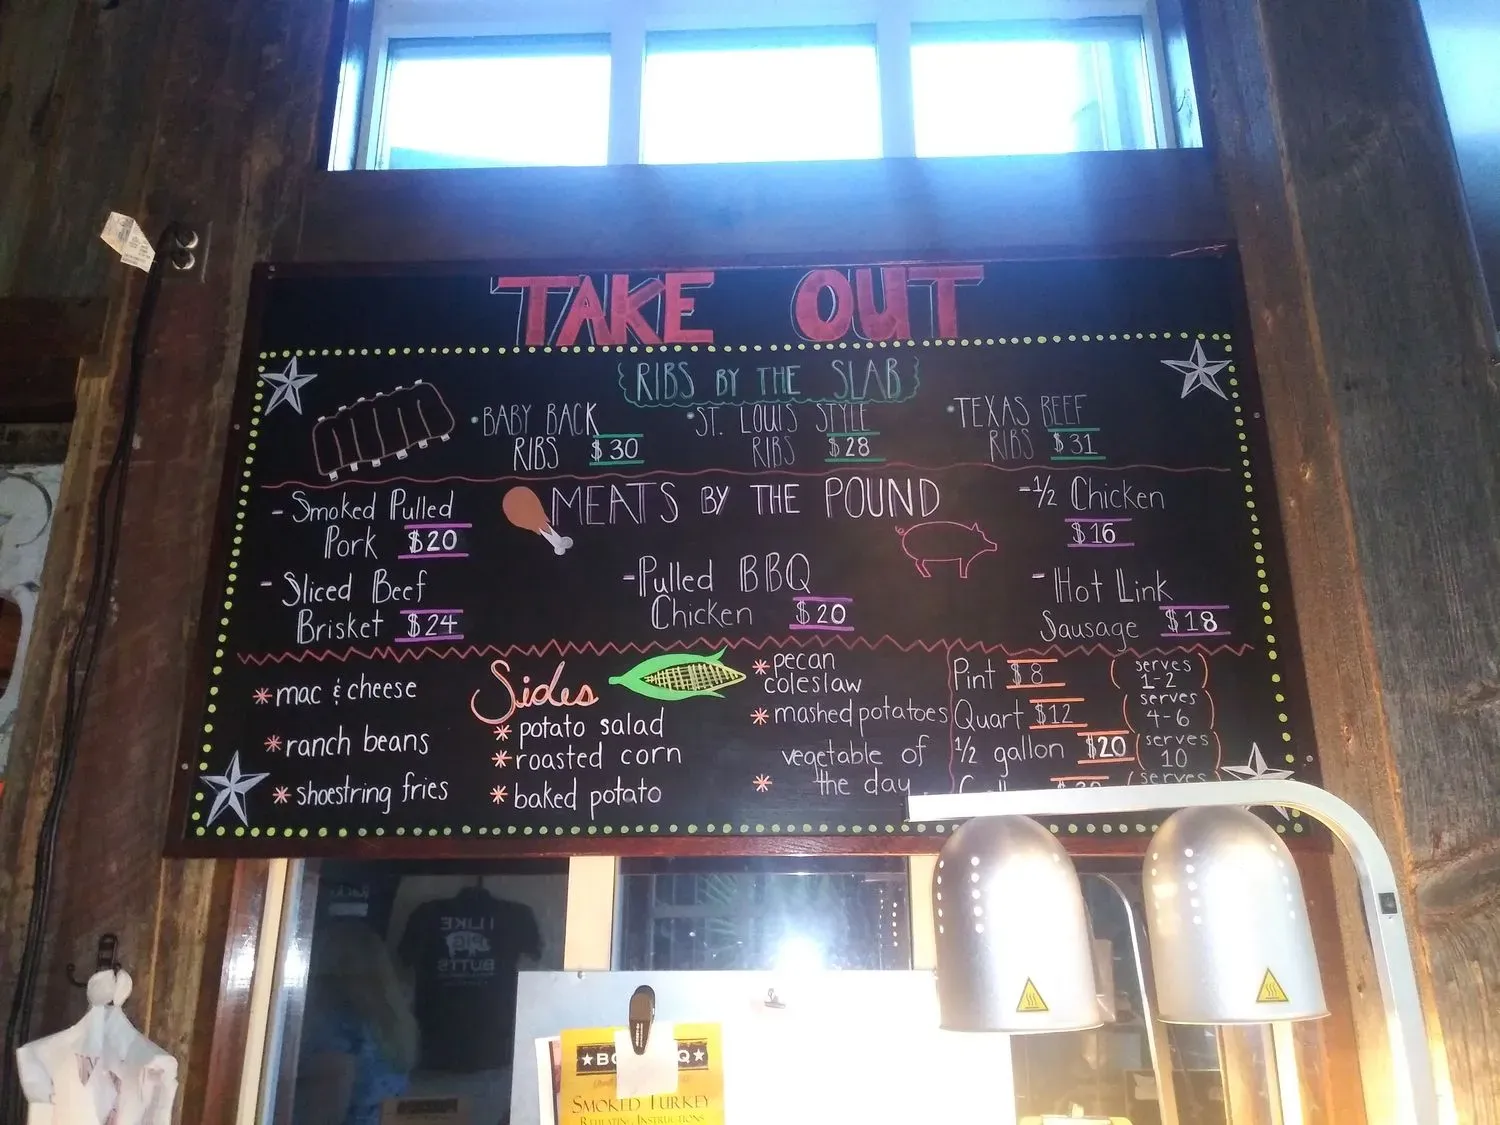 TAKE OUT
RIBS BY THE SLAB
• BABY BACK
RIBS $30
• ST. LOUIS STYLE
RIBS $28
• TEXAS BEEF
RIBS $31
MEATS BY THE POUND
- Smoked Pulled
Pork $20
- Sliced Beef
Brisket $24
- Pulled BBQ
Chicken $20
- 1/2 Chicken
$16
- Hot Link
Sausage $18
Sides
* mac & cheese
* ranch beans
* shoestring fries
* potato salad
* roasted corn
* baked potato
* pecan
coleslaw
* mashed potatoes
vegetable of
* the day
Pint $8 (serves
1-2)
Quart $12 (serves
4-6)
1/2 gallon $20 (serves
10)
(serves
I LIKE
BUTTS
SMOKED TURKEY
REHEATING INSTRUCTIONS